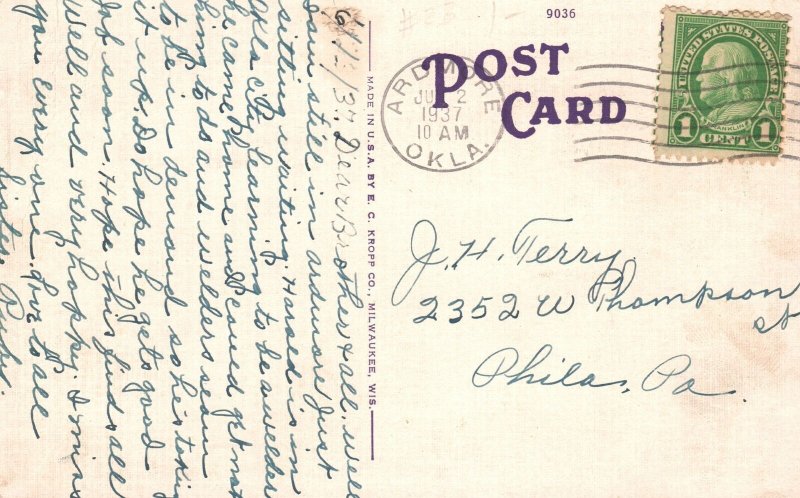 6/1-/37. Dear Brother & all. well
I am still in ardmore. Just
sitting, waiting. Harold is in
Okla City learning to be a welder
he came home and could get not
him to do and welders seem
to be in demand so he's taking
it up. Do hope he gets good
Job soon. Hope this finds all
well and very happy. I miss
you every one. Love to all
Sister Ruby.
MADE IN U.S.A. BY E. C. KROPP CO., MILWAUKEE, WIS.
9036
POST
CARD
ARDMORE
2
1937
10 AM
OKLA.
UNITED STATES POSTAGE
FRANKLIN
1 CENT 1
J. H. Terry
2352 W Thompson
st
Phila, Pa.